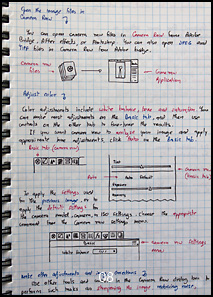 Open the image files in
Camera Raw
You can open camera raw files in Camera Raw from Adobe
Bridge, After effects, or Photoshop. You can also open JPEG and
TIFF files in Camera Raw from Adobe Bridge.
Camera raw
files
Camera raw
Application
Adjust color
Color adjustments include white balance, tone and saturation. You
can make most adjustments on the Basic tab, and then use
controls on the other tabs to fine-tune the results.
If you want camera raw to analyze your image and apply
approximate tone adjustments, click Auto in the Basic tab.
Basic tab (camera raw)
Tint
Auto
Auto Default
Exposure
Recovery
Camera raw
(Basic tab)
To apply the settings used
for the previous image, or to
apply the default settings for
the camera model, camera, or ISO settings, choose the appropriate
command from the Camera raw settings menu.
Basic
White Balance
Camera raw
settings
menu
Make other adjustments and image corrections
Use other tools and controls in the Camera Raw dialog box to
perform such tasks as sharpening the image, reducing noise,
108